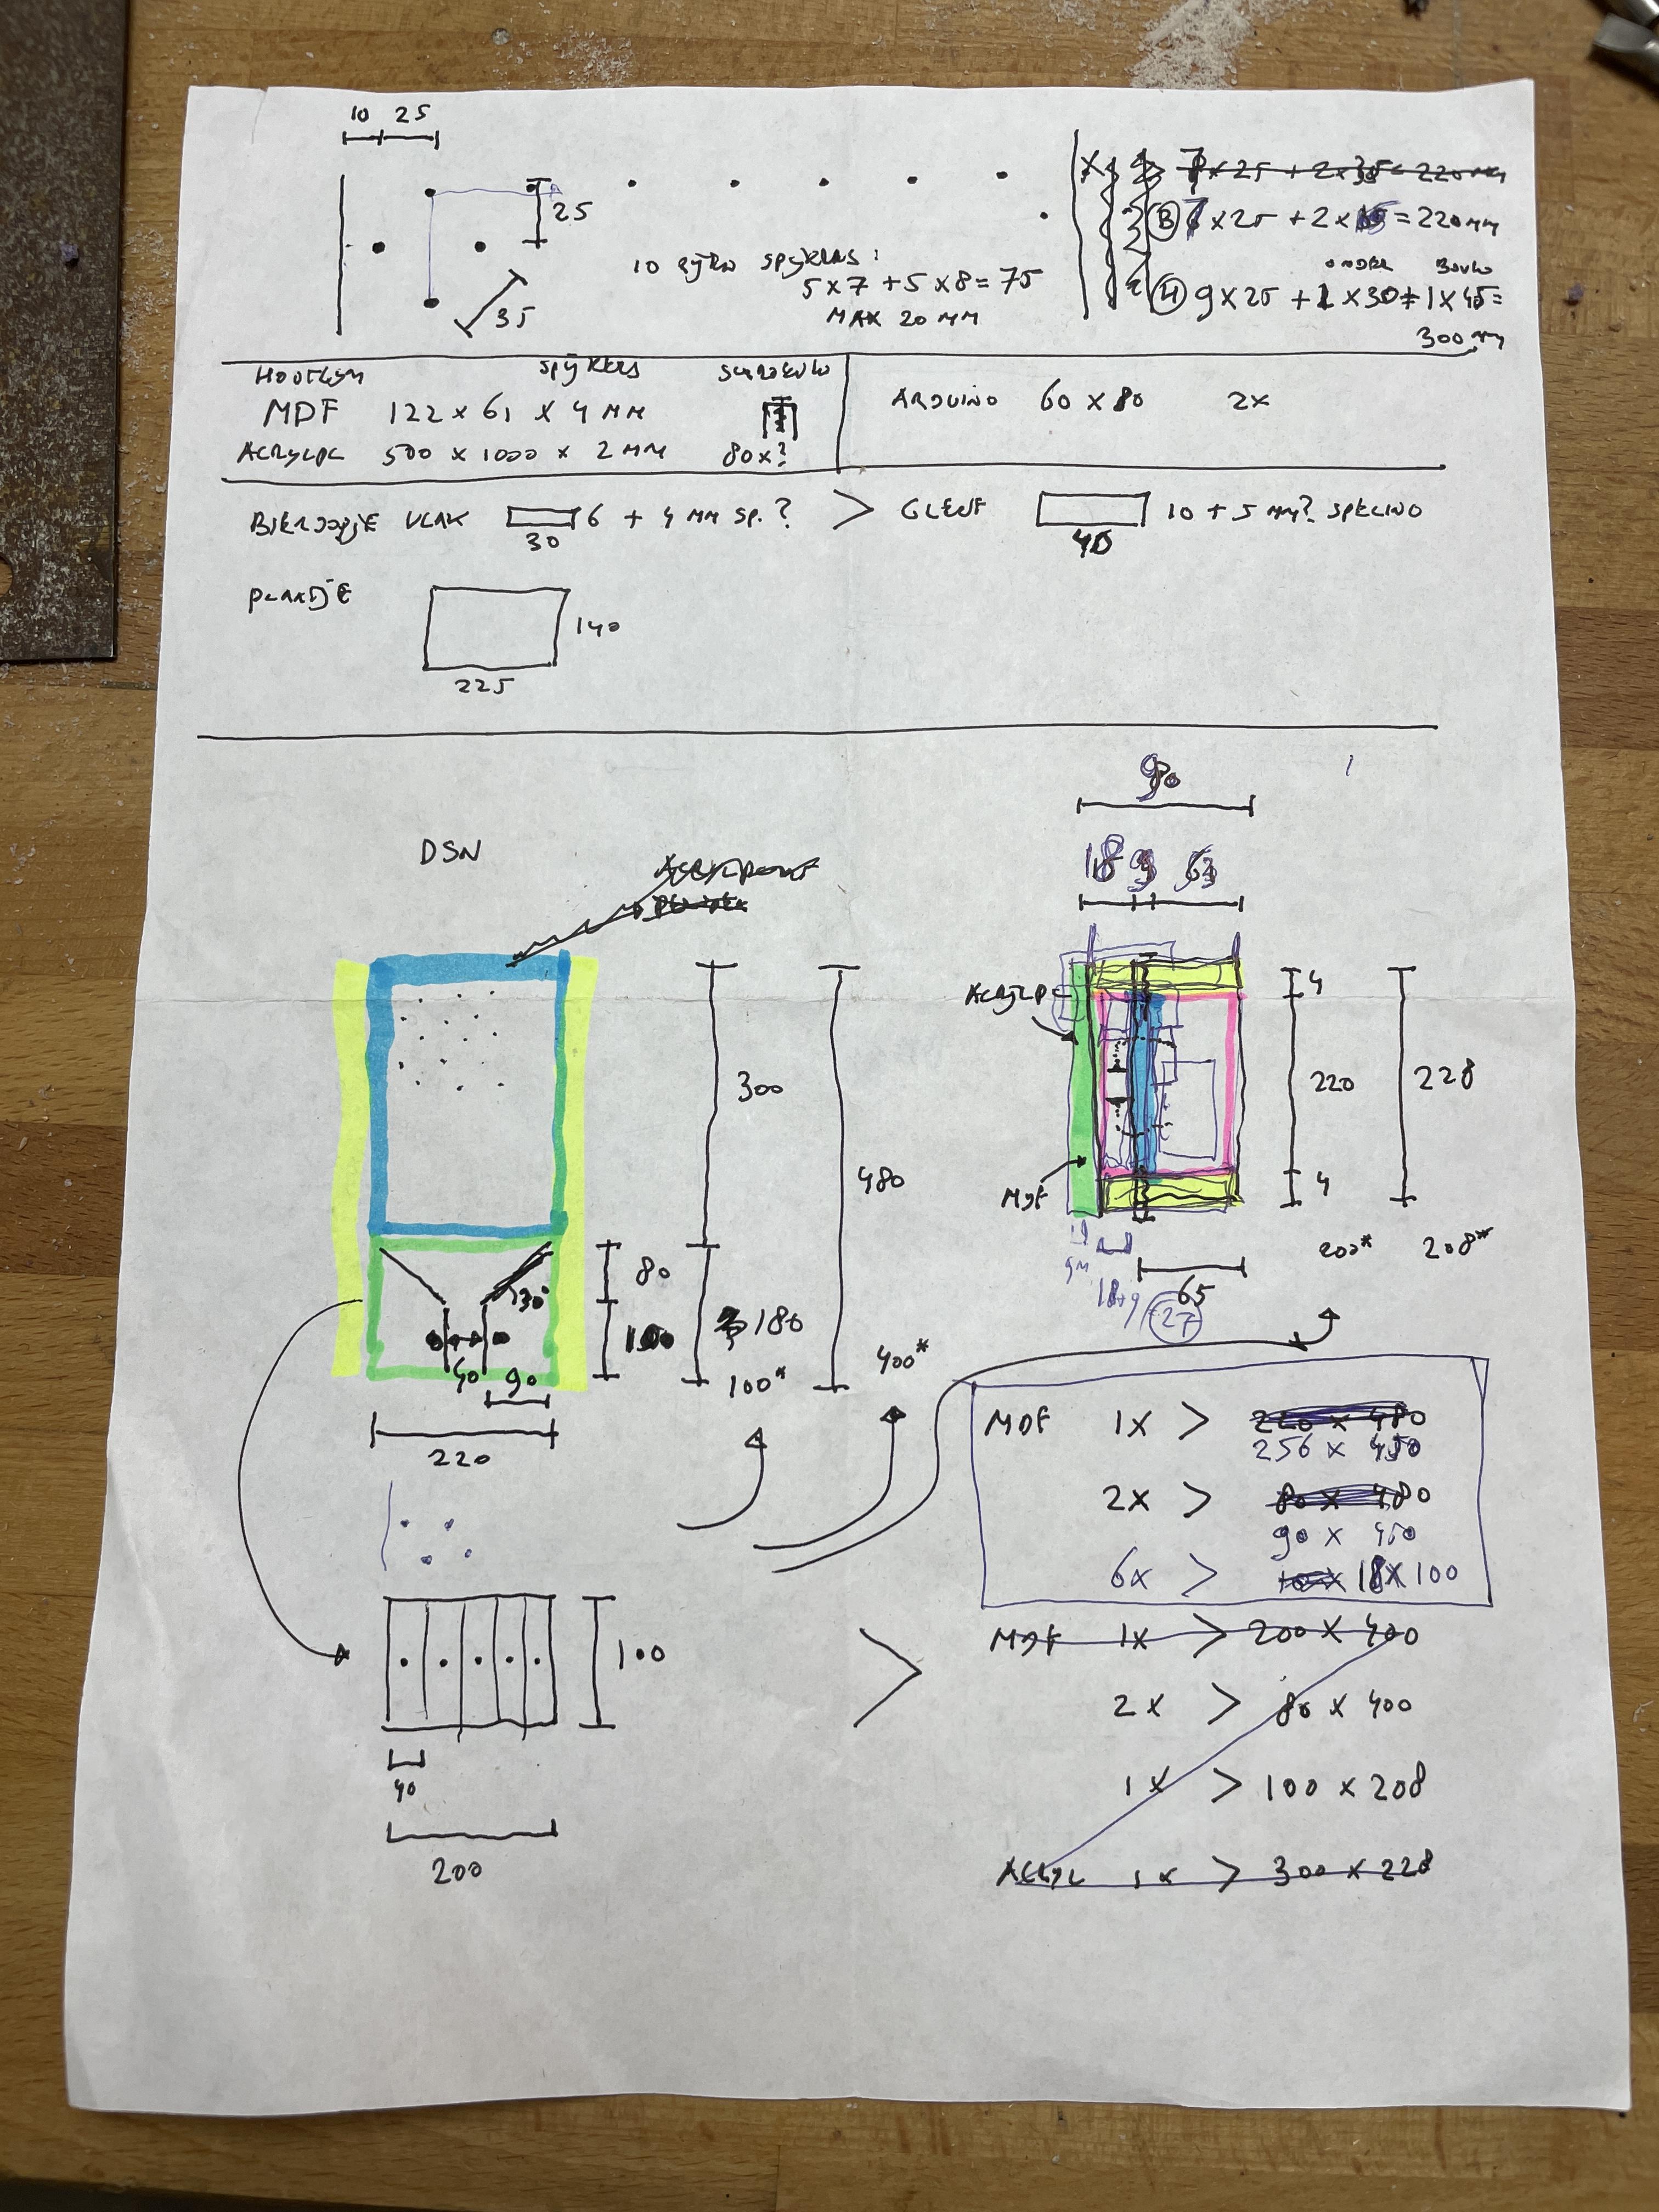 10 25
25
35
10 rijen spijkers:
5 x 7 + 5 x 8 = 75
MAX 20 MM
7 x 25 + 2 x = 220 MM
onder boven
9 x 25 + 1 x 30 + 1 x 45 =
300 MM
Houtlijm Spijkers Schroeven
MDF 122 x 61 x 4 MM
Acrylpl 500 x 1000 x 2 MM 80x?
Arduino 60 x 80 2x
Bierdopje vlak 6 + 4 MM sp.? > Gleuf 10 + 5 MM? speling
30
40
Plaatje
140
225
DSN
300
480
80
30°
100
180
40
90
100*
400*
220
90
18 9 63
Acrylpl
MDF
4
220
228
4
200*
208*
65
27
MDF 1x > 220 x 480
256 x 450
2x > 80 x 480
90 x 450
6x > 18 x 100
MDF 1x > 200 x 400
2x > 80 x 400
1x > 100 x 208
Acryl 1x > 300 x 228
100
40
200